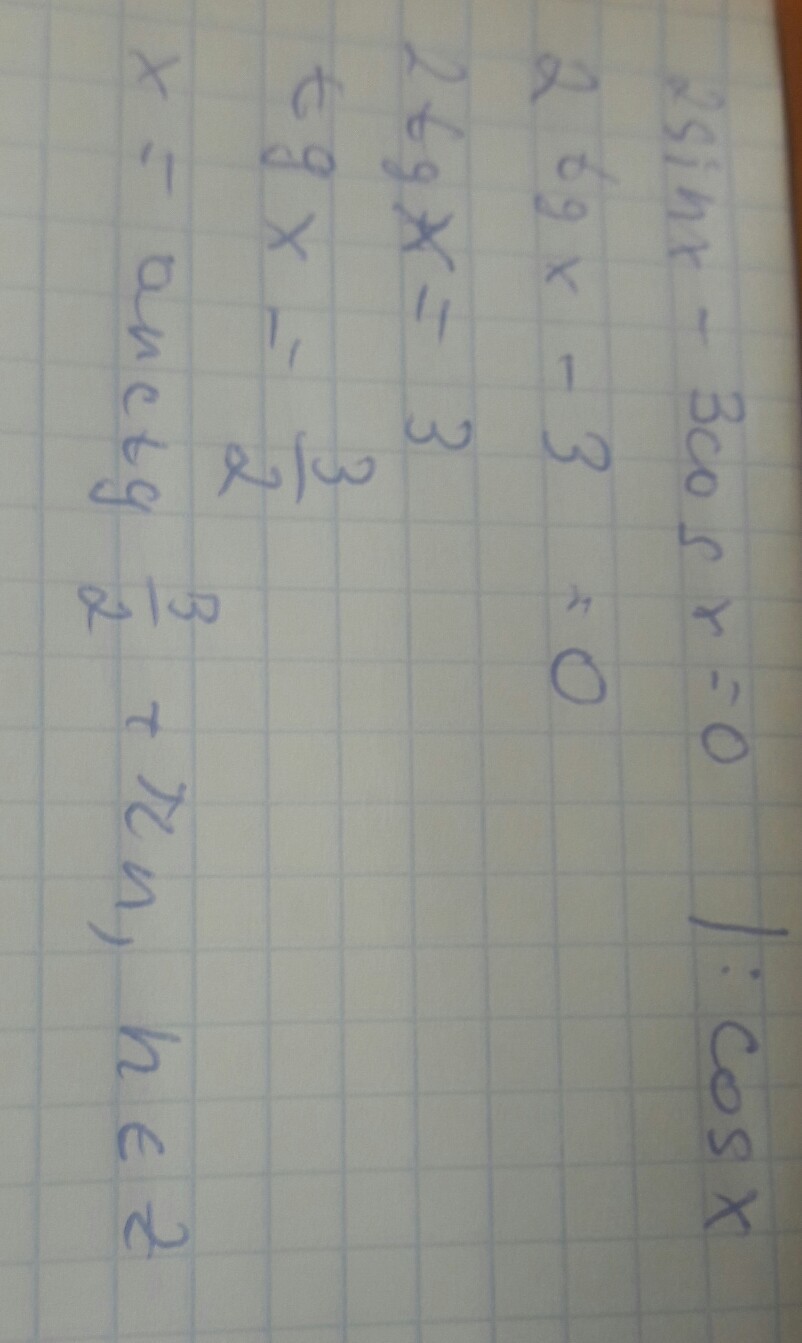 2sinx - 3cosx = 0 |: cosx
2tgx - 3 = 0
2tgx = 3
tgx = 3/2
x = arctg 3/2 + πn, n ∈ Z